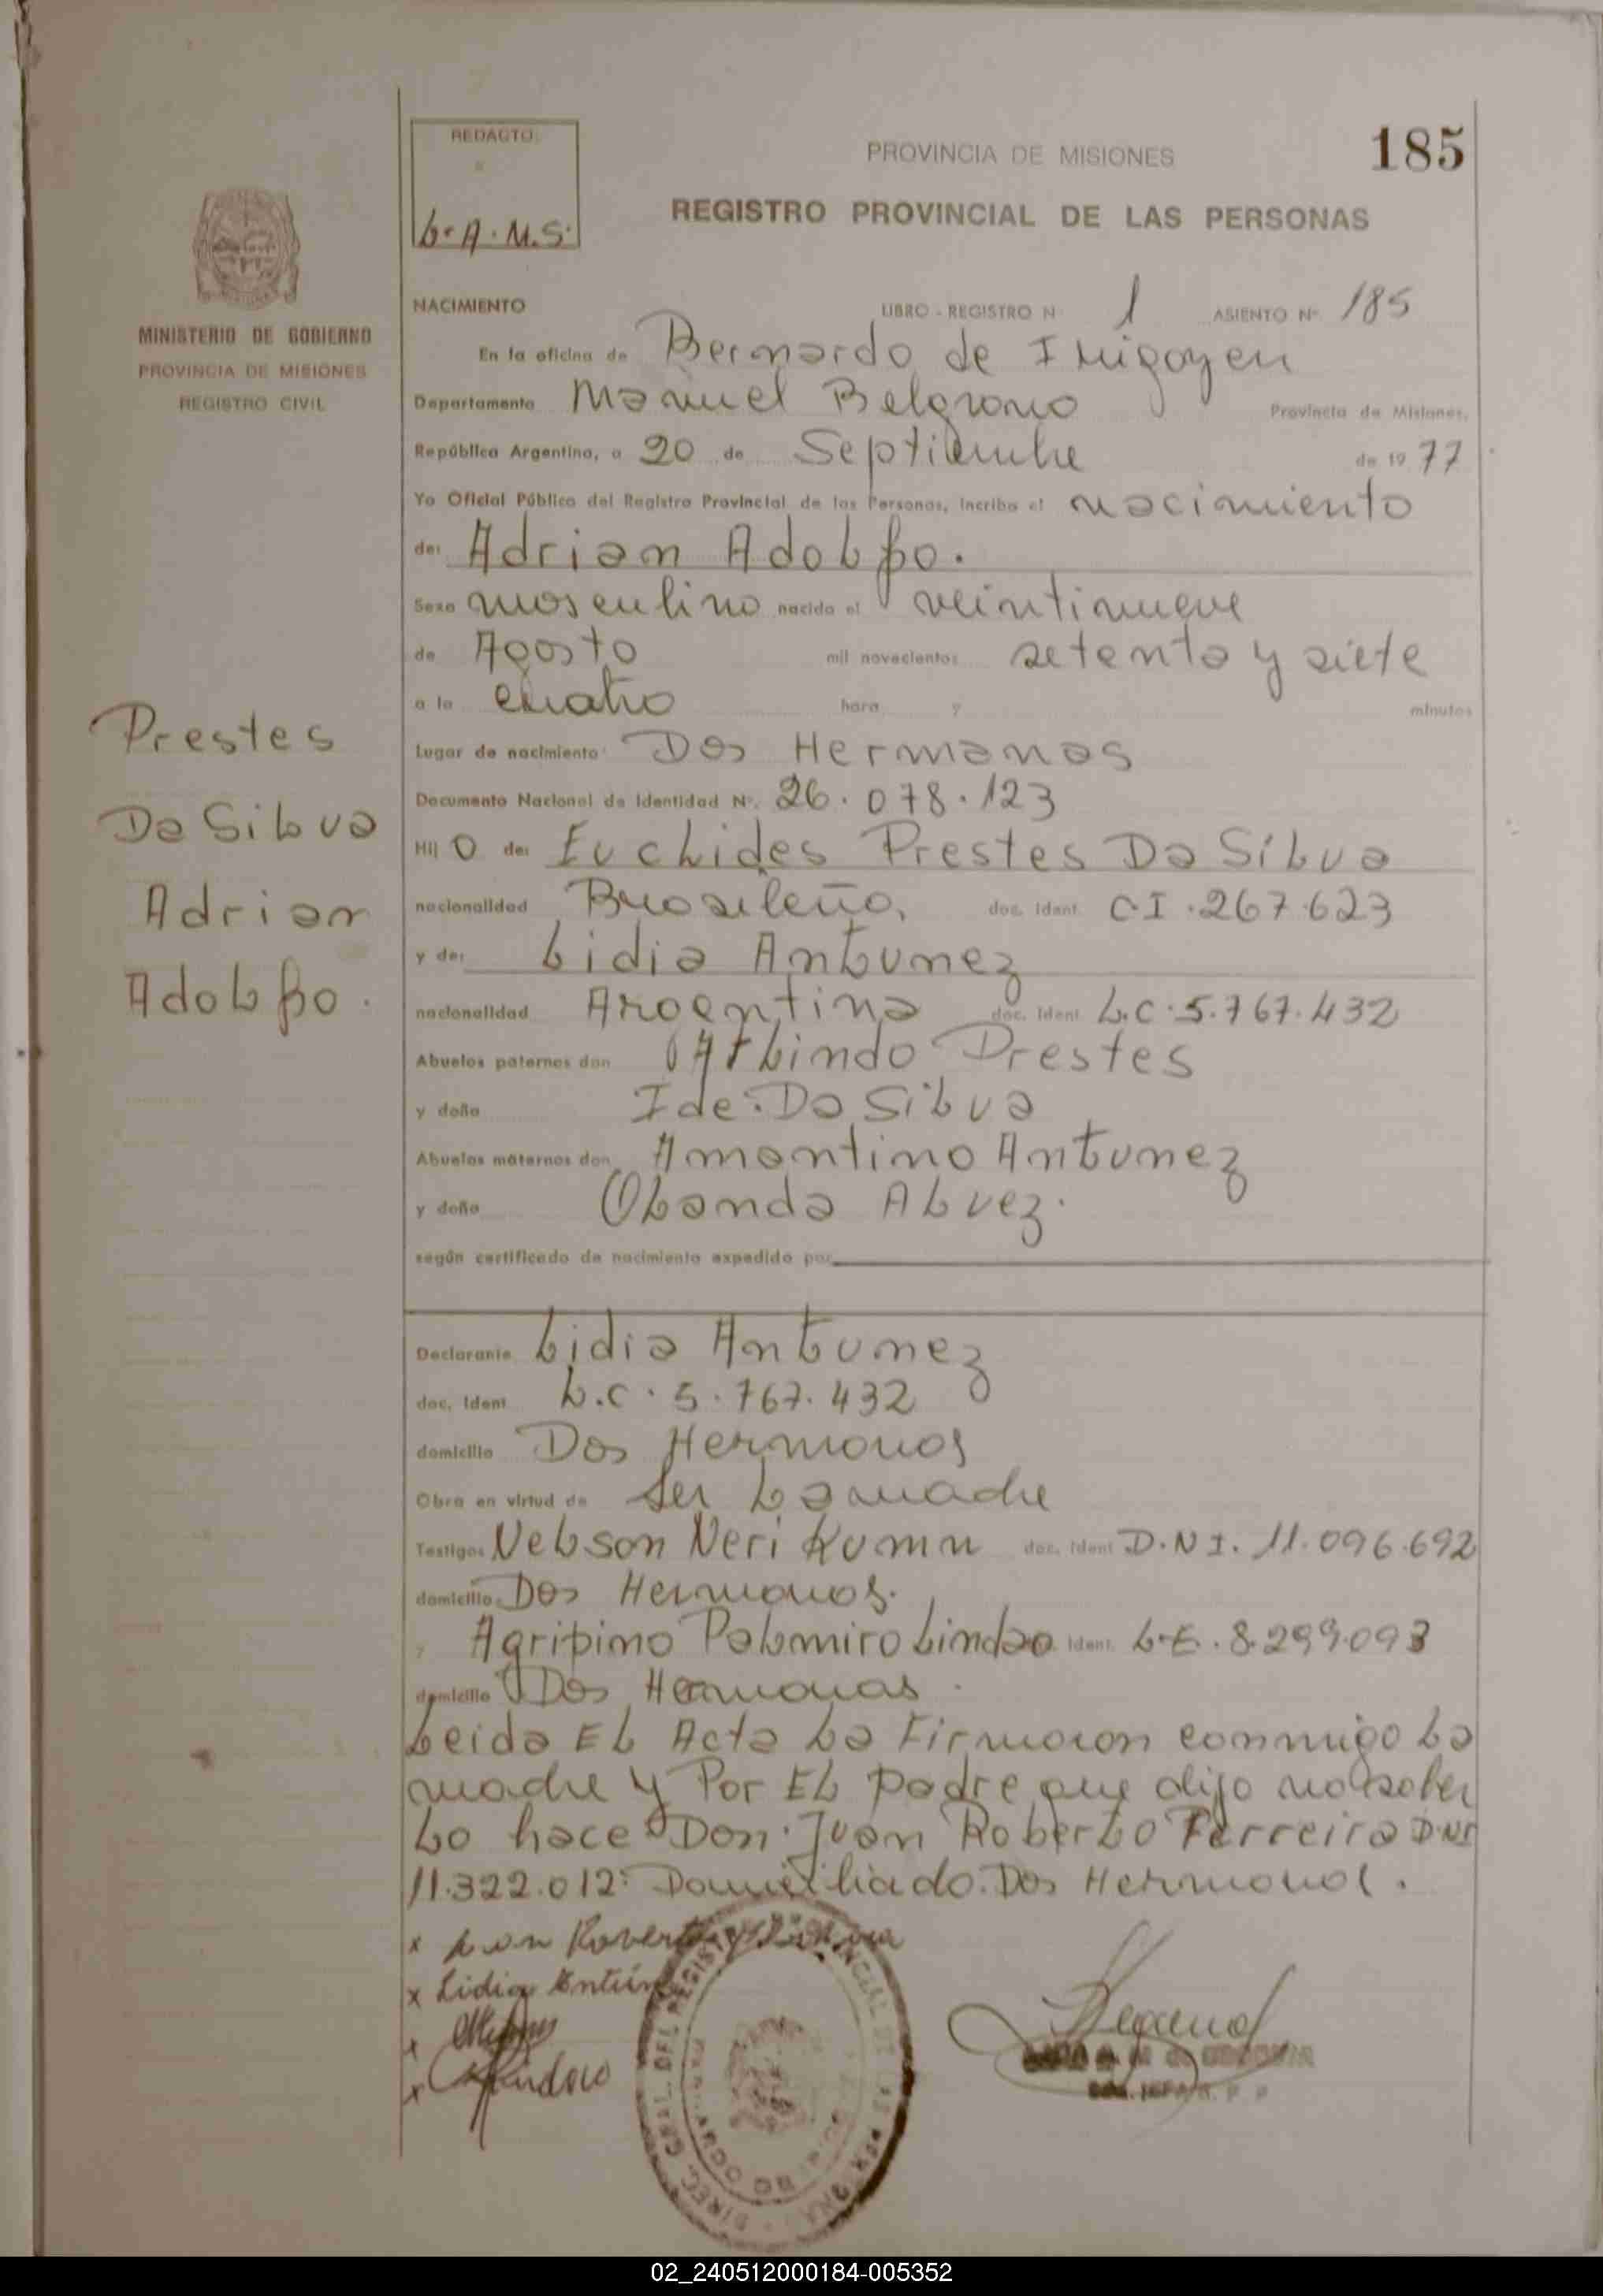 REDACTO:
L. A. M. S.
PROVINCIA DE MISIONES
185
REGISTRO PROVINCIAL DE LAS PERSONAS
MINISTERIO DE GOBIERNO
PROVINCIA DE MISIONES
REGISTRO CIVIL
NACIMIENTO LIBRO - REGISTRO N° 1 ASIENTO N° 185
En la oficina de Bernardo de Irigoyen
Departamento Manuel Belgrano Provincia de Misiones,
República Argentina, a 20 de Septiembre de 1977
Yo Oficial Público del Registro Provincial de las Personas, incribo el nacimiento
de: Adrian Adolfo.
Sexo masculino nacido el veintinueve
de Agosto mil novecientos setenta y siete
a la cuatro hora y minutos
Lugar de nacimiento: Dos Hermanas
Documento Nacional de Identidad N°. 26.078.123
Hij o de: Euclides Prestes Da Silva
nacionalidad Brasileño, doc. ident. C.I. 267.623
y de: Lidia Antunez
nacionalidad Argentina doc. ident. L.C. 5.767.432
Abuelos paternos don Arlindo Prestes
y doña Ide. Da Silva
Abuelos maternos don Amantino Antunez
y doña Olanda Alvez.
según certificado de nacimiento expedido por
Prestes
Da Silva
Adrian
Adolfo.
Declarante Lidia Antunez
doc. ident L.C. 5.767.432
domicilio Dos Hermanas
Obra en virtud de Ser La madre
Testigos Nelson Neri doc. ident D.N.I. 11.096.692
domicilio Dos Hermanas.
y Agripino Palmiro Lindao ident. L.E. 8.299.093
domicilio Dos Hermanas.
Leida EL Acta La Firmaron conmigo La
madre y Por EL padre que dijo no saber
Lo hace Don. Juan Roberto Ferreira D.N.I
11.322.012. Domiciliado. Dos Hermanas.
x Roberto
x Lidia Antún
x
x
DIREC. GRAL. DEL REGISTRO PROVINCIAL DE LAS PERSONAS
02_240512000184-005352